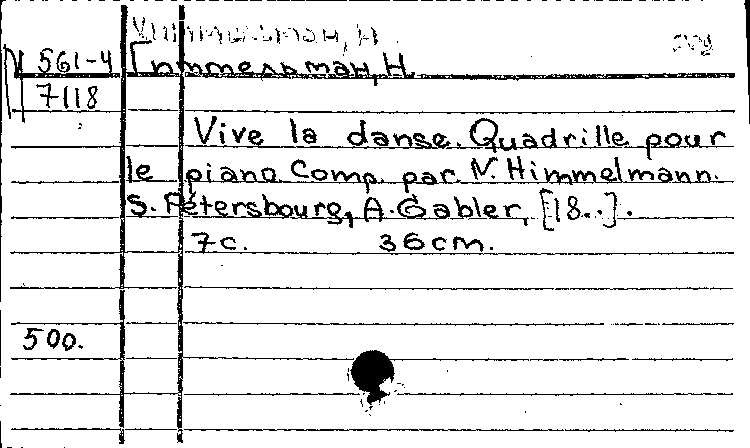 М 561-4 Гиммельман, Н.
7118
Vive la danse. Quadrille pour
le piano Comp. par N. Himmelmann.
S. Pétersbourg, A. Gabler, [18..].
7с. 36см.
500.